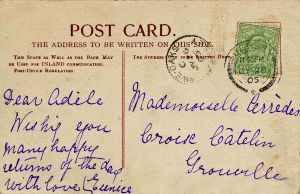 POST CARD.
THE ADDRESS TO BE WRITTEN ON THIS SIDE.
THIS SPACE AS WELL AS THE BACK MAY
BE USED FOR INLAND COMMUNICATION.
POST-OFFICE REGULATION.
Dear Adèle
Wishing you
many happy
returns of the day
with love Eunice
Mademoiselle Perrèdès
Croix Câtelin
Grouville
05